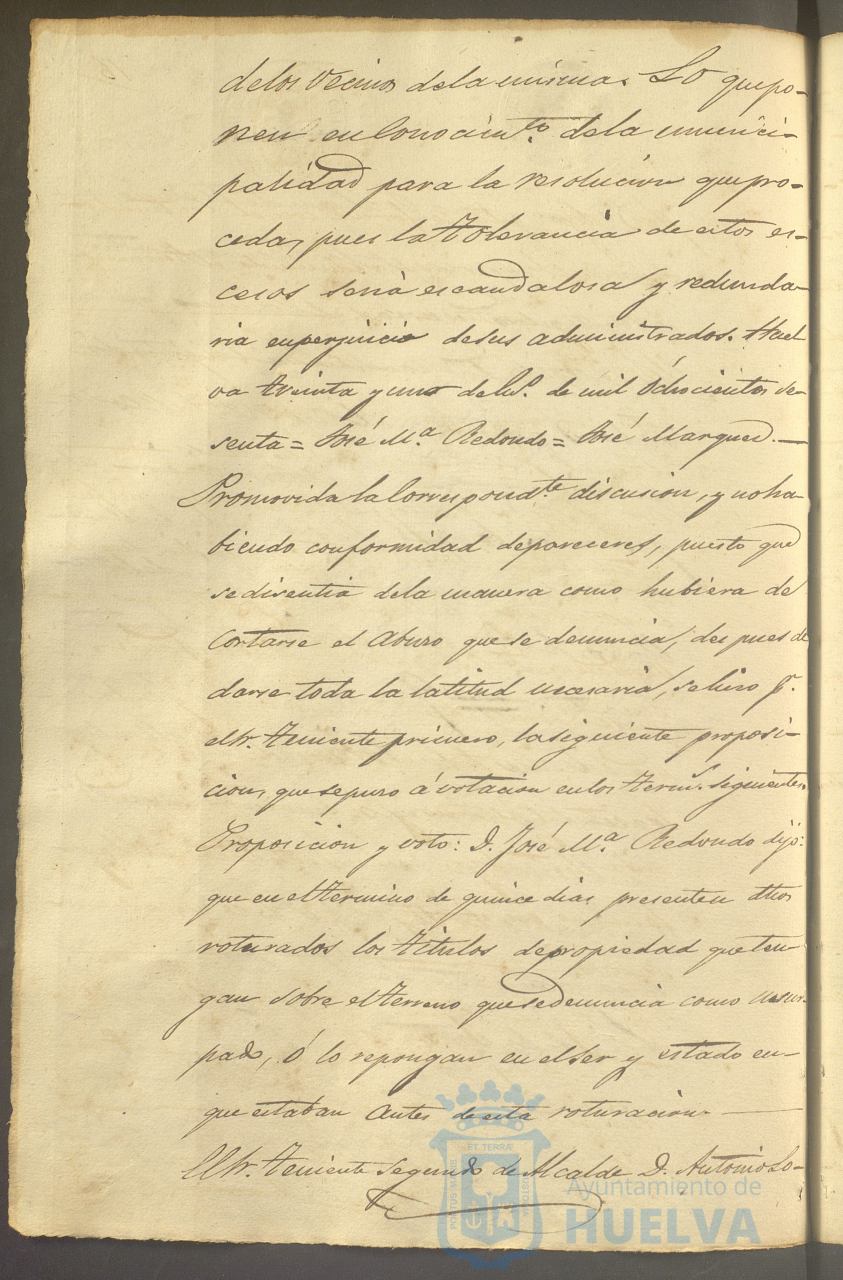 delos vecinos dela misma. Lo que po-
nen en Conocim.to dela munici-
palidad para la resolucion que pro-
ceda, pues la tolerancia de estos es-
cesos seria escandalosa y redunda-
ria en perjuicio de sus administrados. Huel
va treinta y uno de de mil Ochocientos se-
senta = José M.a Redondo = José Marquez. —
Promovida la Correspond.te discusion, y no ha-
biendo conformidad de pareceres, puesto que
se disentia dela manera como hubiera de
Cortarse el Abuso que se denuncia, despues de
darse toda la latitud necesaria, se hizo p.r
el Sr. Teniente primero, la siguiente proposi-
cion, que se puso á votacion en los term.s siguientes
Proposicion y voto: D. José M.a Redondo dijo:
que en el termino de quince dias presenten dhos
roturados los titulos de propiedad que ten
gan sobre el terreno que se denuncia como usur-
pado, ó lo repongan en el ser y estado en-
que estaban Antes de esta roturacion. —
El Sr. Teniente Segundo de Alcalde D. Antonio Lo-
ET TERRÆ
PORTUS MARIS
CUSTODIA
Ayuntamiento de
HUELVA